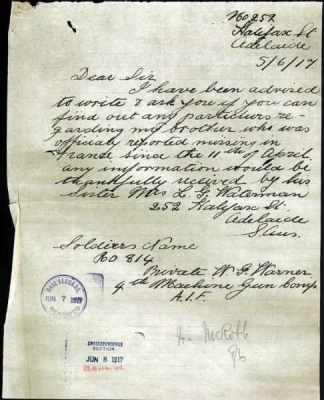 No 252
Halifax St
Adelaide
5/6/17
Dear Sir
I have been advised
to write & ask you if you can
find out any particulars re-
garding my brother who was
officialy reported missing in
France since the 11th of April
any information would be
thankfully received by his
sister Mrs L. G. Waterman
252 Halifax St.
Adelaide
S. Aus.
Soldiers Name
No 814
Private W. G. Warner
4th Machine Gun Comp
A.I.F.
BASE RECORDS
JUN 7 1917
CORRESPONDENCE
SECTION
JUN 8 1917